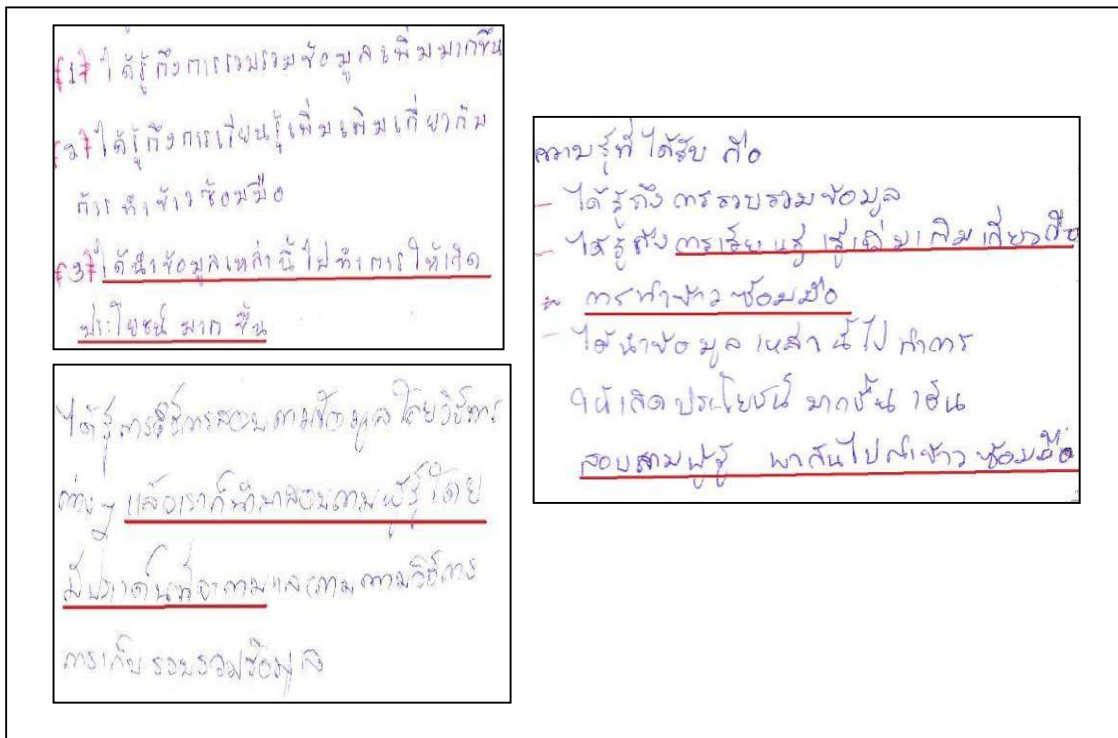 {1} ได้รู้ถึงการรวบรวมข้อมูลเพิ่มมากขึ้น
{2} ได้รู้ถึงการเรียนรู้เพิ่มเติมเกี่ยวกับ
การทำข้าวซ้อมมือ
{3} ได้นำข้อมูลเหล่านี้ไปทำการให้เกิด
ประโยชน์ มาก ขึ้น
ได้รู้การวิธีการสอบถามข้อมูลโดยวิธีการ
ต่างๆ แล้วเราก็นำมาสอบถามผู้รู้โดย
มีประเด็นที่จะถามและถามตามวิธีการ
การเก็บรวบรวมข้อมูล
ความรู้ที่ได้รับ คือ
- ได้รู้ถึงการรวบรวมข้อมูล
- ได้รู้ถึงการเรียนรู้ เพิ่มเติมเกี่ยว
การทำข้าวซ้อมมือ
- ได้นำข้อมูลเหล่านี้ไปทำการ
ให้เกิดประโยชน์ มากขึ้น เช่น
สอบถามผู้รู้ พากันไปทำข้าวซ้อมมือ